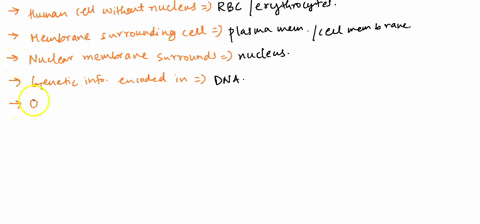 → Human cell without nucleus => RBC /erythrocytes.
→ Membrane surrounding cell => plasma mem. /cell membrane
→ Nuclear membrane surrounds => nucleus.
→ Genetic info. encoded in => DNA.
→ O